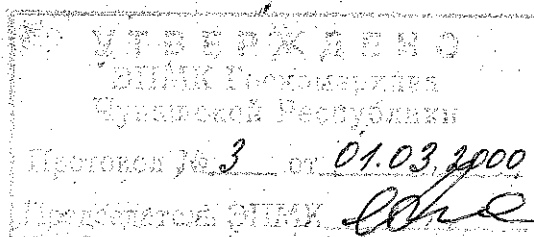 УТВЕРЖДЕНО
ЭПМК Госкомархива
Чувашской Республики
Протокол № 3 от 01.03.2000
Председатель ЭПМК